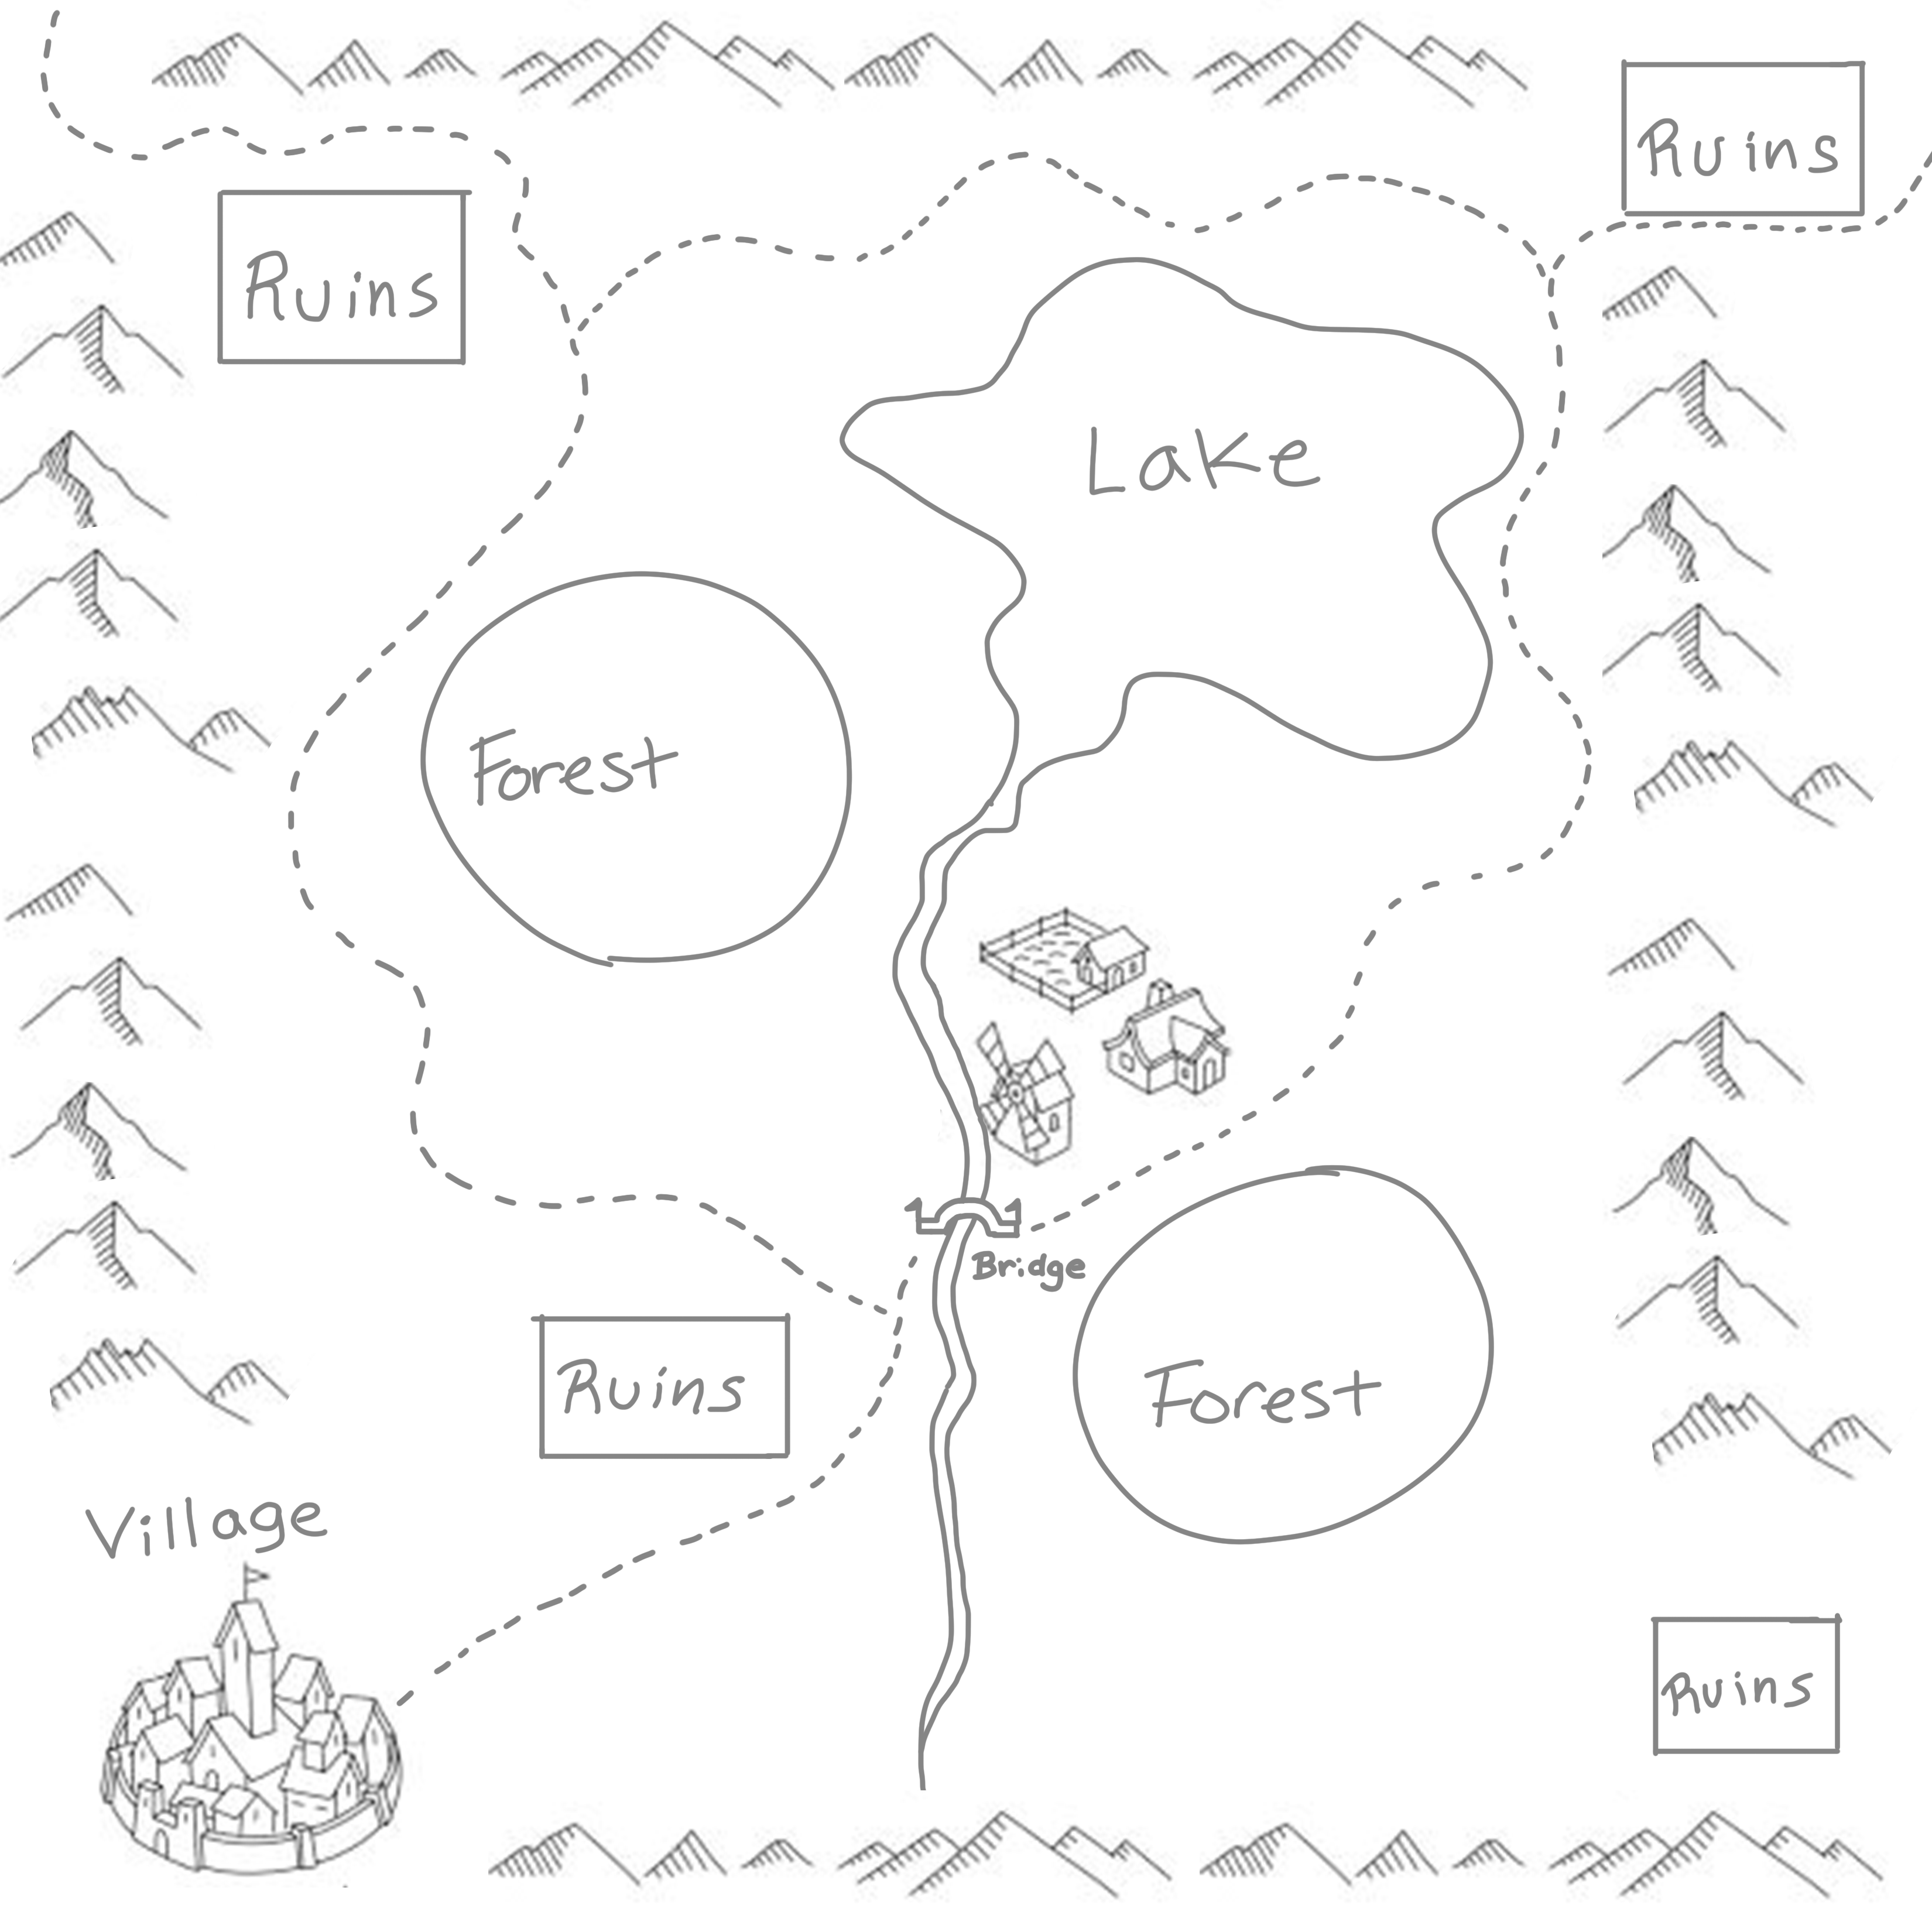 Ruins
Ruins
Lake
Forest
Bridge
Ruins
Forest
Village
Ruins